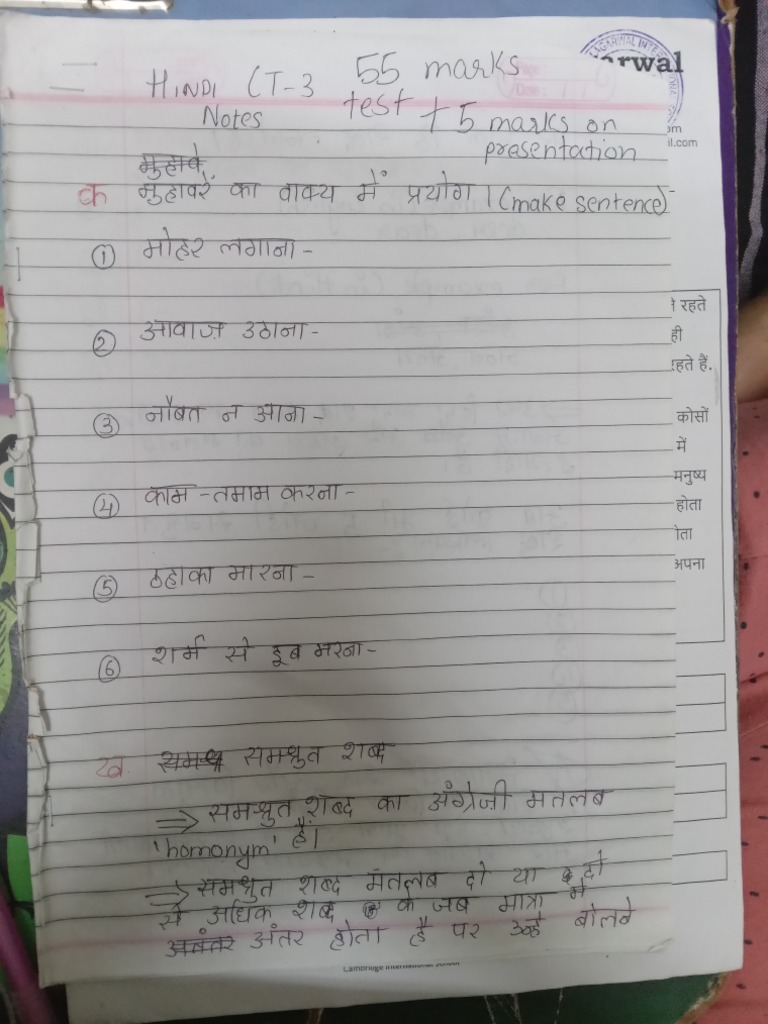 HINDI CT-3 55 marks
Notes test + 5 marks on
presentation
rwal
om
il.com
मुहावे
क मुहावरें का वाक्य में प्रयोग। (make sentence)
① मोहर लगाना -
② आवाज़ उठाना -
③ नौबत न आना -
④ काम - तमाम करना -
⑤ ठहाका मारना -
⑥ शर्म से डूब मरना -
ख. समश्रु समश्रुत शब्द
⇒ समश्रुत शब्द का अंग्रेज़ी मतलब
'homonym' है।
⇒ समश्रुत शब्द मतलब दो या दो
से अधिक शब्द के जब मात्रा में
अंतर होता है पर उन्हें बोलने
रहते
ही
रहते हैं.
कोसों
में
मनुष्य
होता
ोता
अपना
Cambridge International School